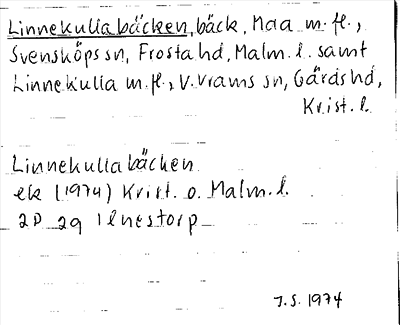 Linnekullabäcken, bäck, Maa m.fl.,
Svensköps sn, Frosta hd, Malm. l. samt
Linnekulla m.fl., V. Vrams sn, Gärds hd,
Krist. l.
Linnekullabäcken
ek (1974) Krist. o. Malm. l.
2D 2g Ilnestorp
J.S. 1974